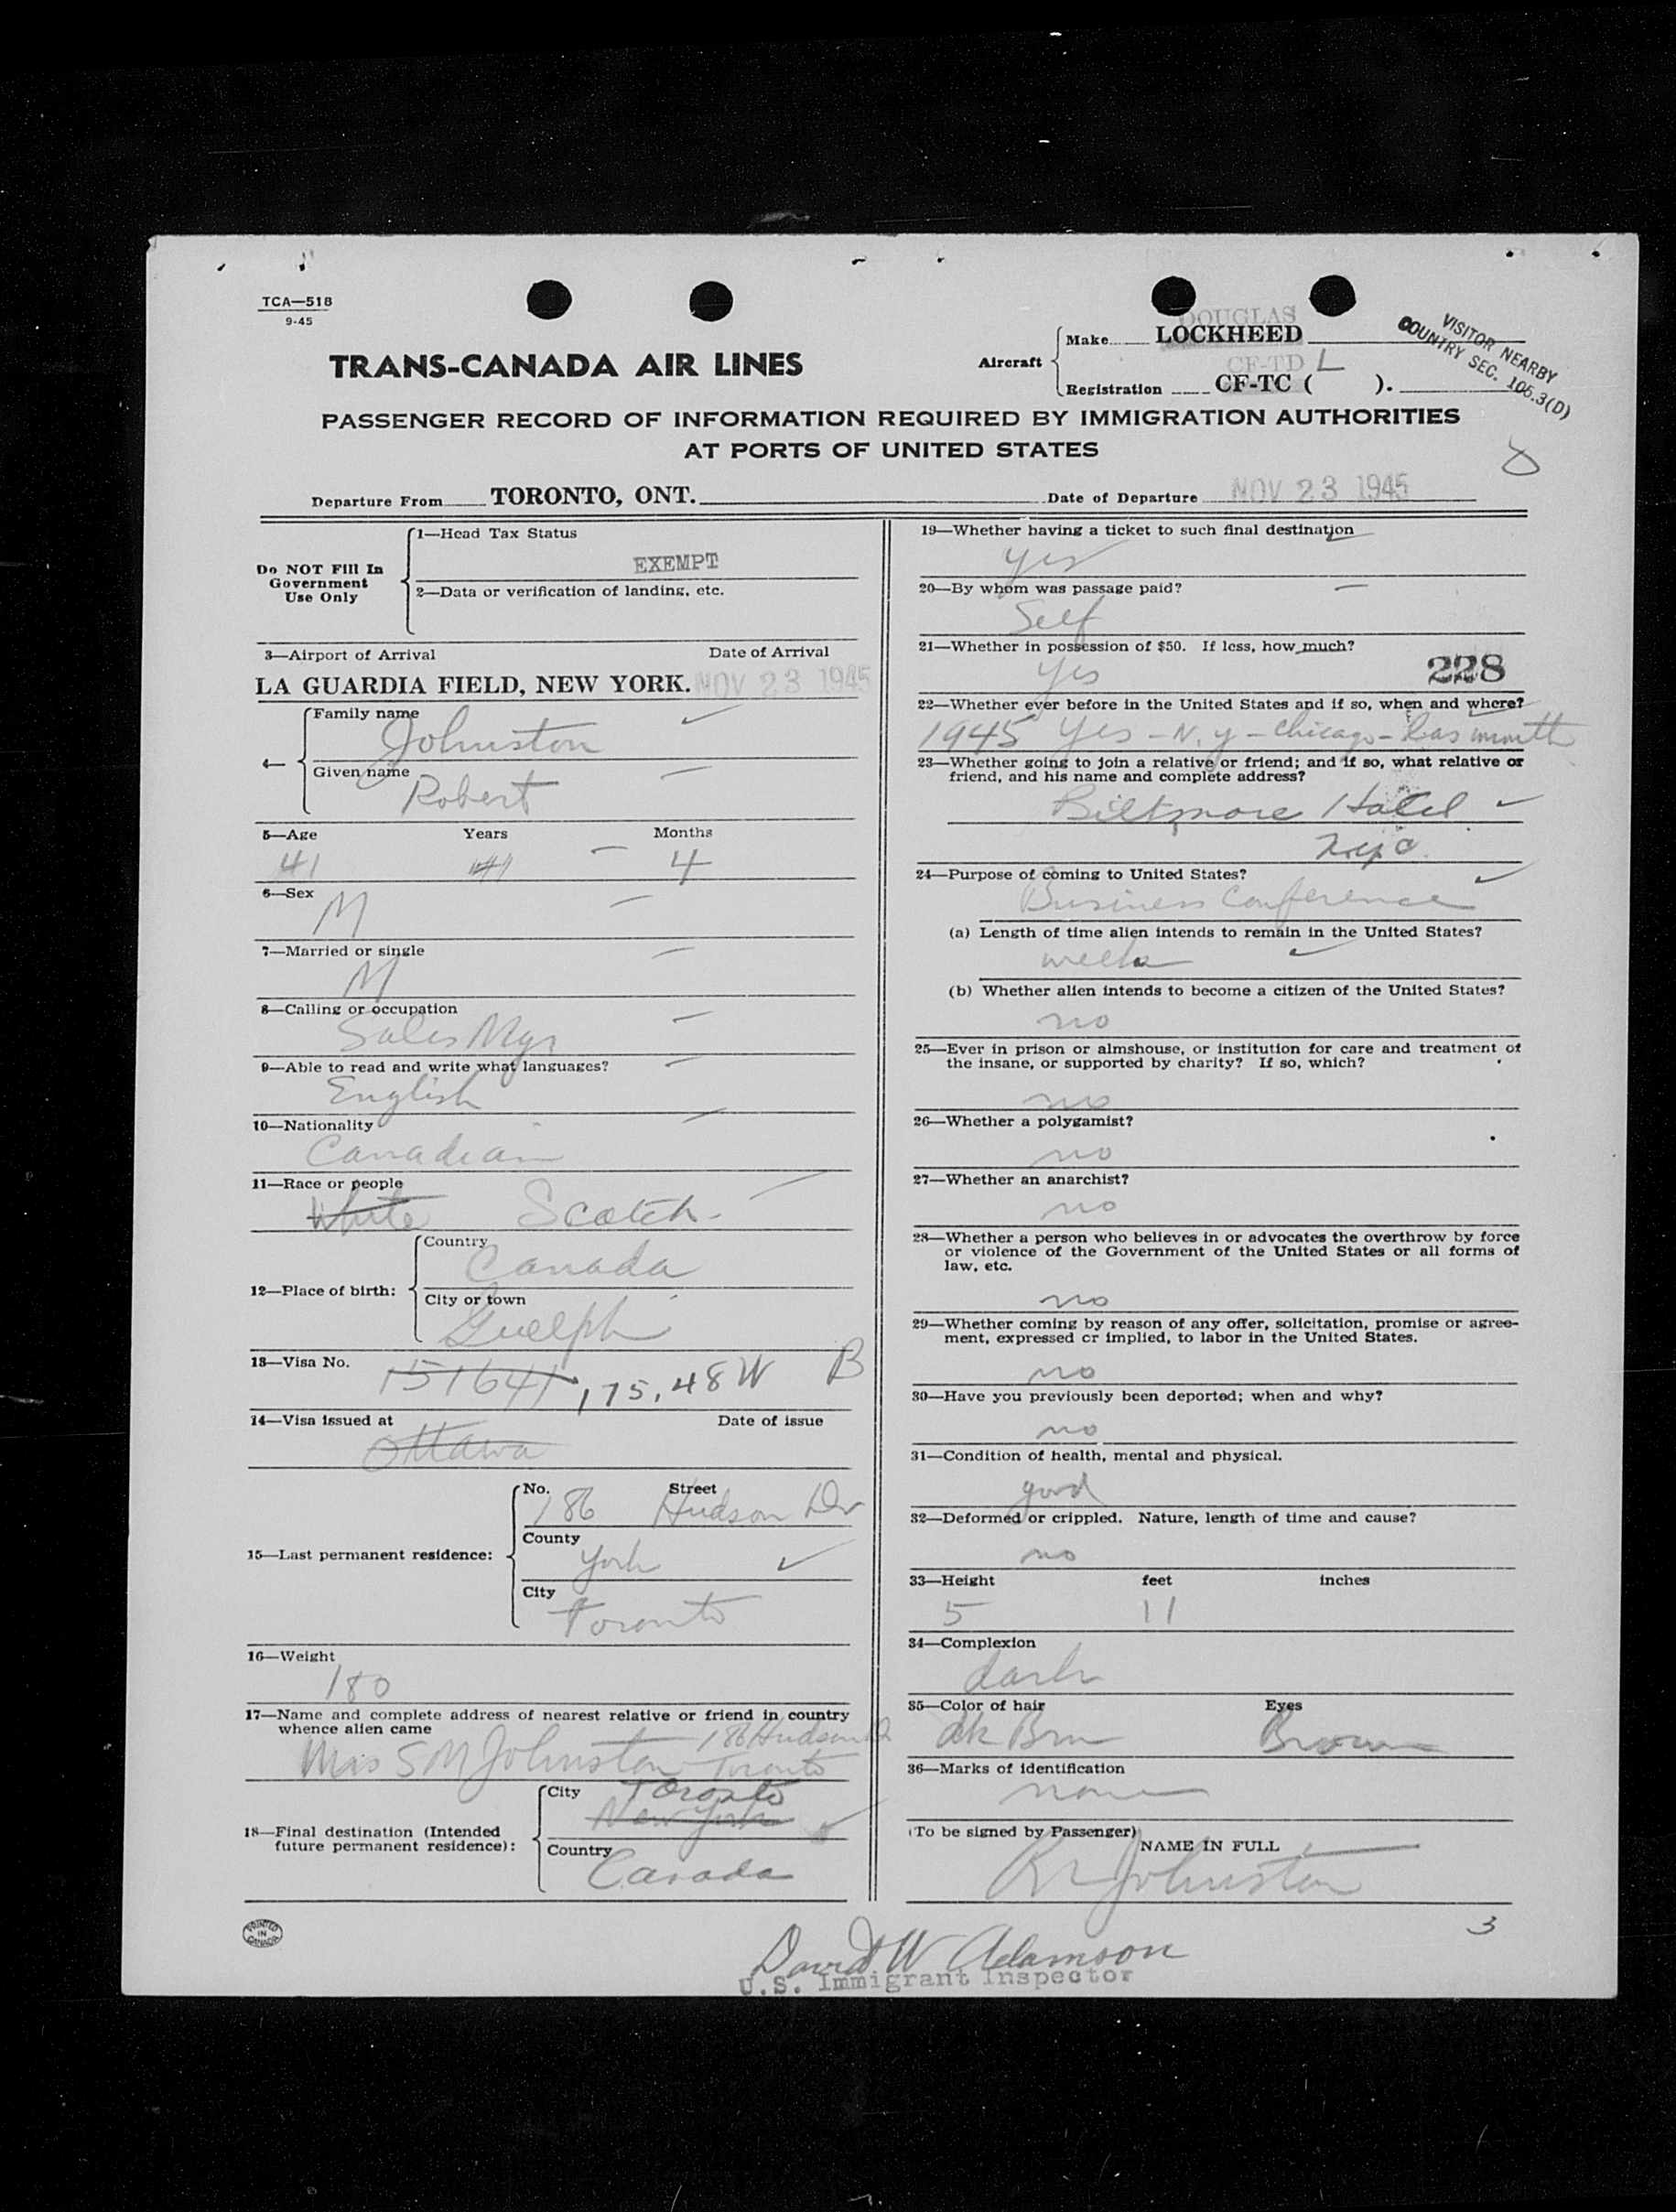 TCA—518
9-45
TRANS-CANADA AIR LINES
Aircraft
Make DOUGLAS LOCKHEED
Registration CF-TD L CF-TC ( ).
VISITOR NEARBY
COUNTRY SEC. 105.3(D)
PASSENGER RECORD OF INFORMATION REQUIRED BY IMMIGRATION AUTHORITIES
AT PORTS OF UNITED STATES
Departure From TORONTO, ONT. Date of Departure NOV 23 1945
Do NOT Fill In
Government
Use Only
1—Head Tax Status
EXEMPT
2—Data or verification of landing, etc.
3—Airport of Arrival Date of Arrival
LA GUARDIA FIELD, NEW YORK. NOV 23 1945
4—
Family name
Johnston
Given name
Robert
5—Age Years Months
41 41 4
6—Sex
M
7—Married or single
M
8—Calling or occupation
Sales Mgr
9—Able to read and write what languages?
English
10—Nationality
Canadian
11—Race or people
White Scotch
12—Place of birth:
Country
Canada
City or town
Guelph
13—Visa No.
151641 175,48W B
14—Visa issued at Date of issue
Ottawa
15—Last permanent residence:
No. Street
186 Hudson Dr
County
York
City
Toronto
16—Weight
180
17—Name and complete address of nearest relative or friend in country
whence alien came
186 Hudson
Mrs S M Johnston Toronto
18—Final destination (Intended
future permanent residence):
City Toronto
New York
Country
Canada
PRINTED
IN
CANADA
19—Whether having a ticket to such final destination
yes
20—By whom was passage paid?
Self
21—Whether in possession of $50. If less, how much?
yes
228
22—Whether ever before in the United States and if so, when and where?
1945 yes - N.Y - Chicago - las month
23—Whether going to join a relative or friend; and if so, what relative or
friend, and his name and complete address?
Biltmore Hotel
24—Purpose of coming to United States?
Business Conference
(a) Length of time alien intends to remain in the United States?
week
(b) Whether alien intends to become a citizen of the United States?
no
25—Ever in prison or almshouse, or institution for care and treatment of
the insane, or supported by charity? If so, which?
no
26—Whether a polygamist?
no
27—Whether an anarchist?
no
28—Whether a person who believes in or advocates the overthrow by force
or violence of the Government of the United States or all forms of
law, etc.
no
29—Whether coming by reason of any offer, solicitation, promise or agree-
ment, expressed or implied, to labor in the United States.
no
30—Have you previously been deported; when and why?
no
31—Condition of health, mental and physical.
good
32—Deformed or crippled. Nature, length of time and cause?
no
33—Height feet inches
5 11
34—Complexion
dark
35—Color of hair Eyes
dk Brn Brown
36—Marks of identification
none
(To be signed by Passenger)
NAME IN FULL
Johnston
3
David W Adamson
U.S. Immigrant Inspector